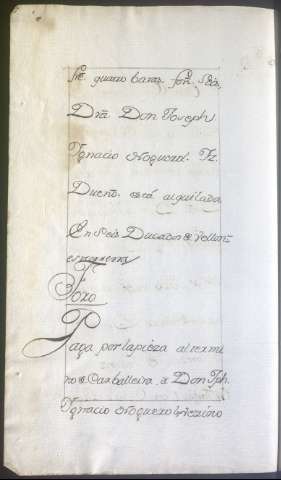 quatro baras
Don Joseph
Ygnacio Noguera.
está alquilada
En Seis Ducados de Vellon
Foro
Paga por la pieza al termi
no de Carballeira, a Don Jph.
Ygnacio Noguero Vezino